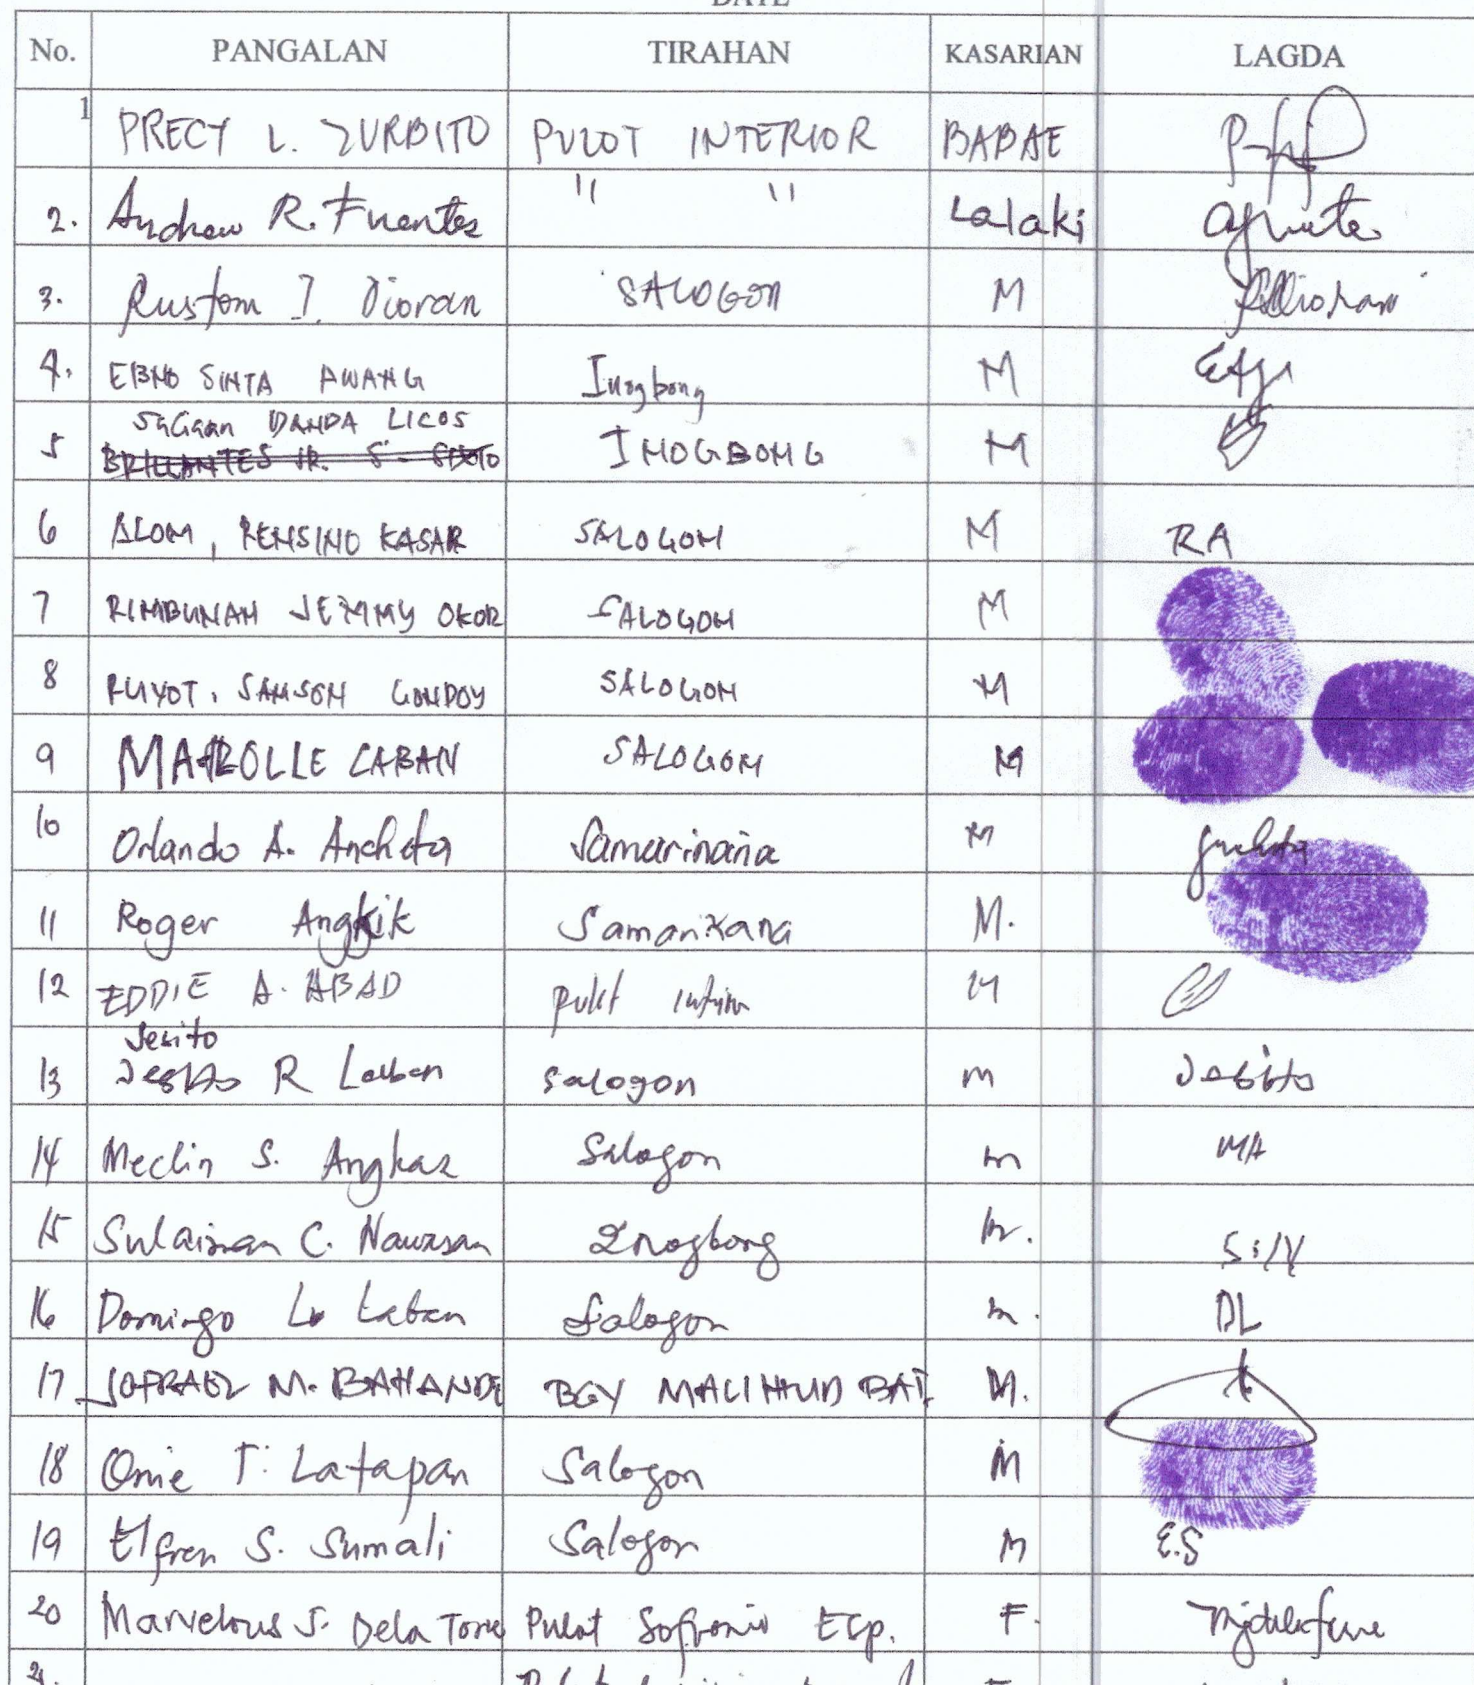 No. PANGALAN TIRAHAN KASARIAN LAGDA
1 PRECY L. ZURBITO PULOT INTERIOR BABAE
2. Andrew R. Fuentes " " Lalaki
3. Rustom I. Dioran SALOGON M
4. EBNO SINTA AWANG Inogbong M
SaGaan DANDA LICOS
5 BRILLANTES JR. S. INOGBONG M
6 ALOM, RENSINO KASAR SALOGON M RA
7 RIMBUNAN JEMMY OKOR SALOGON M
8 RUYOT. SAMSON GONDOY SALOGON M
9 MAROLLE LABAN SALOGON M
10 Orlando A. Ancheta Samariñana M
11 Roger Angkik Samarinana M.
12 EDDIE A. ABAD pulot M
Jesito
13 R Laban salogon m Jesito
14 Meclin S. Angkaz Salogon m MA
15 Sulaiman C. Nawasan Inogbong m.
16 Domingo L. Laban Salogon m. DL
17 JOFRAEL M. BAHANDE BGY MALIHUD BAT. M.
18 Onie T. Latapan Salogon M
19 Elfren S. Sumali Salogon M E.S
20 Marvelous S. Dela Torre Pulot Sofronio Esp. F.
21.